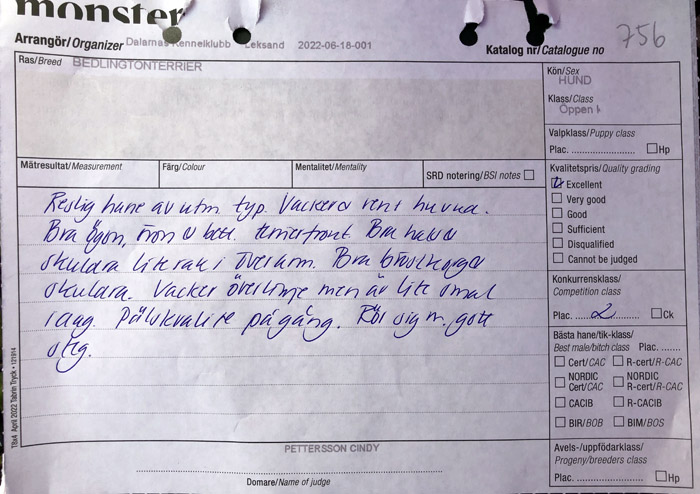 monster
Arrangör/Organizer Dalarnas Kennelklubb Leksand 2022-06-18-001
Katalog nr/Catalogue no 756
Ras/Breed BEDLINGTONTERRIER
Kön/Sex
HUND
Klass/Class
Öppen k
Valpklass/Puppy class
Plac. Hp
Mätresultat/Measurement Färg/Colour Mentalitet/Mentality SRD notering/BSI notes
Kvalitetspris/Quality grading
Excellent
Very good
Good
Sufficient
Disqualified
Cannot be judged
Reslig hane av utm. typ. Vackert rent huvud.
Bra ögon, öron o bett. terrierfront Bra hals o
skuldra lite rak i överarm. Bra bröstkorg o
skuldra. Vacker överlinje men är lite smal
Pälskvalite på gång. Rör sig m. gott
steg.
Konkurrensklass/
Competition class
Plac. 2 Ck
Bästa hane/tik-klass/
Best male/bitch class Plac.
Cert/CAC R-cert/R-CAC
NORDIC Cert/CAC NORDIC R-cert/R-CAC
CACIB R-CACIB
BIR/BOB BIM/BOS
Avels-/uppfödarklass/
Progeny/breeders class
Plac. Hp
PETTERSSON CINDY
Domare/Name of judge
T8x4 April 2022 Tabrin Tryck • 121914